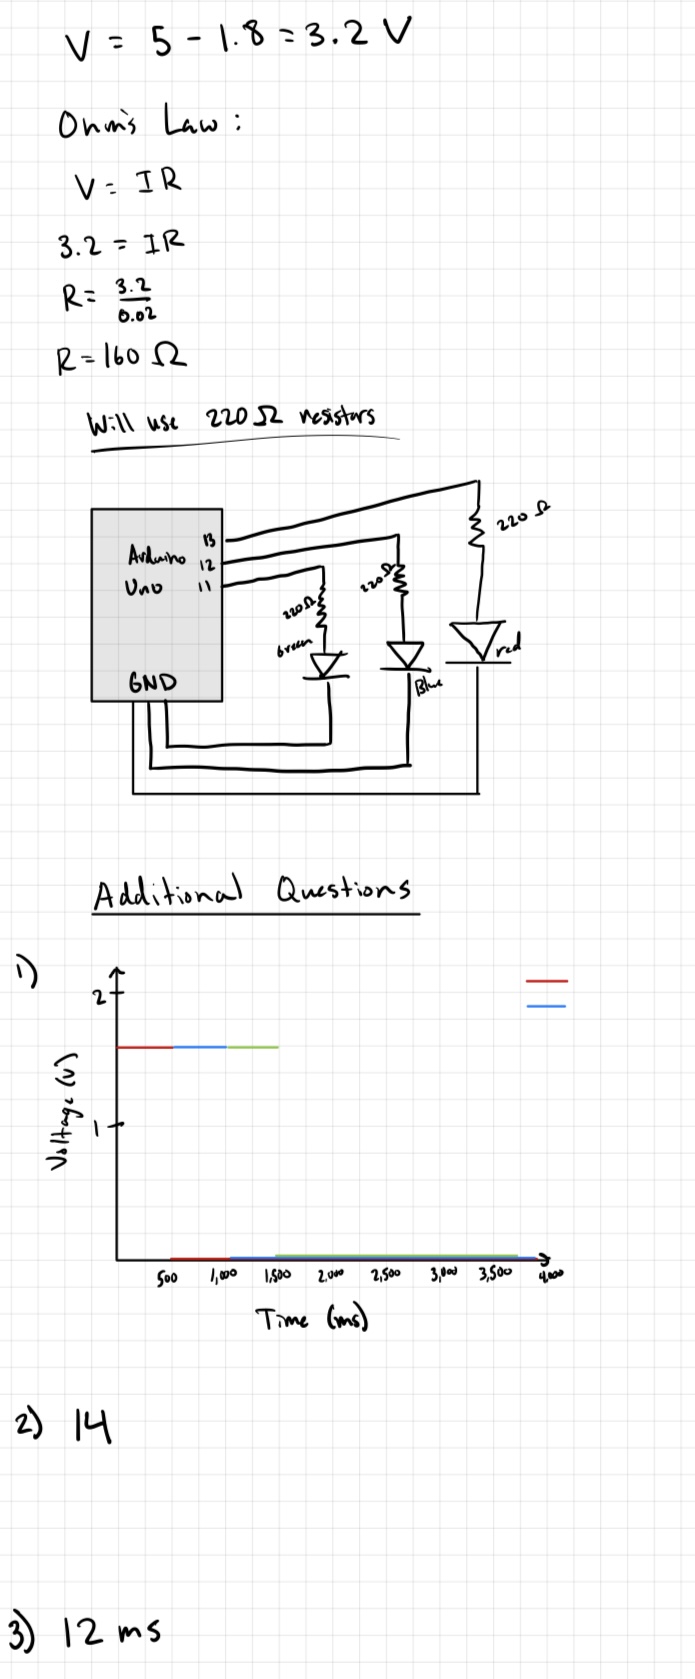 V = 5 - 1.8 = 3.2 V
Ohm's Law :
V = IR
3.2 = IR
R = 3.2/0.02
R = 160 Ω
Will use 220 Ω resistors
220 Ω
13
Arduino 12
Uno 11
220Ω
220Ω
Green
red
Blue
GND
Additional Questions
1)
2
Voltage (V)
1
500 1,000 1,500 2,000 2,500 3,000 3,500 4,000
Time (ms)
2) 14
3) 12 ms